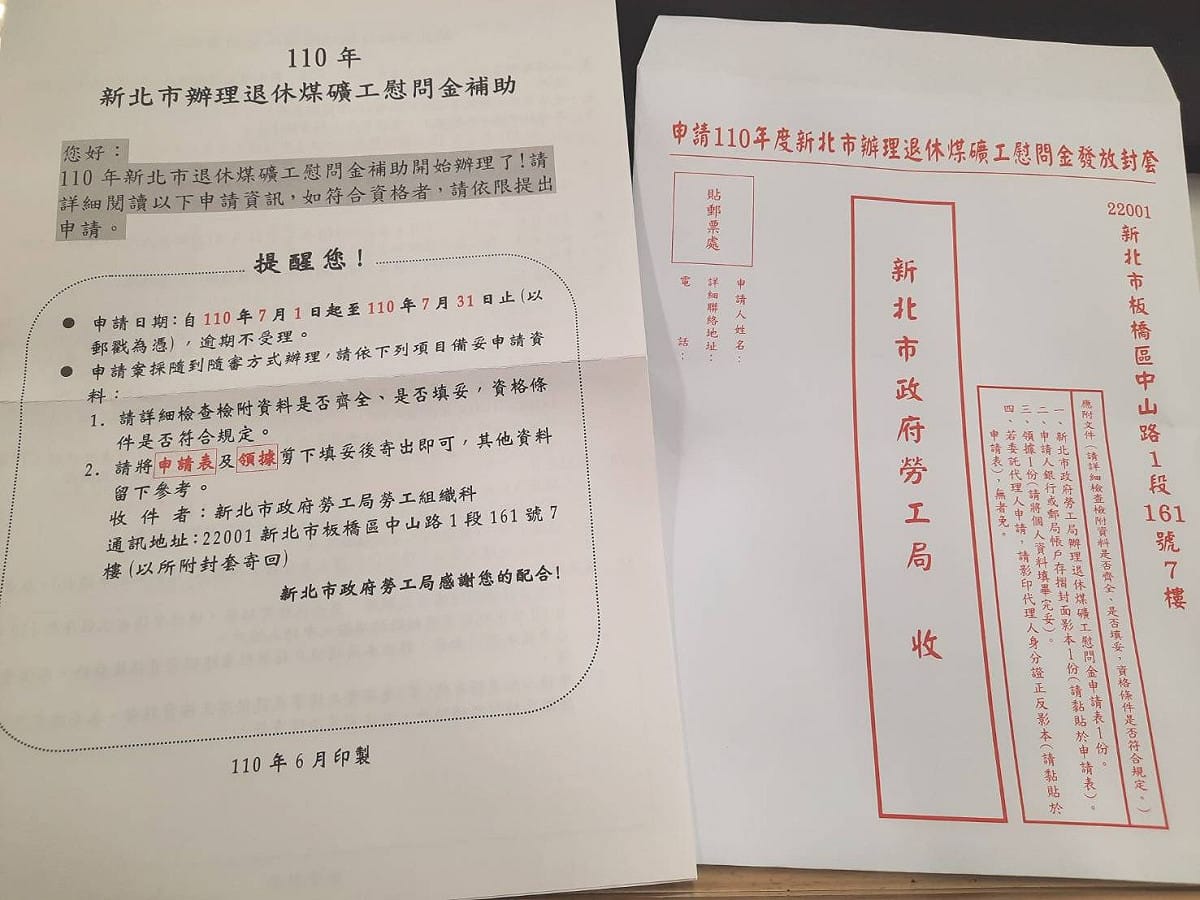 110 年
新北市辦理退休煤礦工慰問金補助
您好：
110 年新北市退休煤礦工慰問金補助開始辦理了!請
詳細閱讀以下申請資訊，如符合資格者，請依限提出
申請。
提醒您！
● 申請日期：自 110 年 7 月 1 日起至 110 年 7 月 31 日止(以
郵戳為憑)，逾期不受理。
● 申請案採隨到隨審方式辦理，請依下列項目備妥申請資
料：
1. 請詳細檢查檢附資料是否齊全、是否填妥，資格條
件是否符合規定。
2. 請將申請表及領據剪下填妥後寄出即可，其他資料
留下參考。
收件者：新北市政府勞工局勞工組織科
通訊地址：22001 新北市板橋區中山路 1 段 161 號 7
樓(以所附封套寄回)
新北市政府勞工局感謝您的配合!
110 年 6 月印製
申請110年度新北市辦理退休煤礦工慰問金發放封套
22001
新北市板橋區中山路1段161號7樓
應附文件（請詳細檢查檢附資料是否齊全、是否填妥，資格條件是否符合規定。）
一、新北市政府勞工局辦理退休煤礦工慰問金申請表1份。
二、申請人銀行或郵局帳戶存摺封面影本1份(請黏貼於申請表)。
三、領據1份(請將個人資料填畢完妥)。
四、若委託代理人申請，請影印代理人身分證正反影本(請黏貼於
申請表)，無者免。
新北市政府勞工局 收
貼郵票處
申請人姓名：
詳細聯絡地址：
電話：